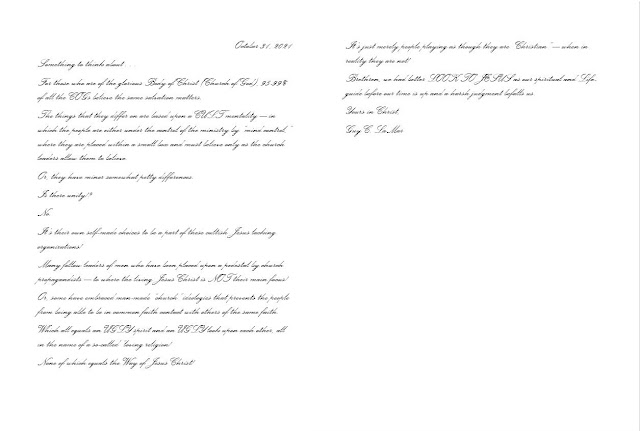 October 31, 2021
Something to think about . . .
For those who are of the glorious Body of Christ (Church of God), 95-99%
of all the COGs believe the same salvation matters.
The things that they differ on are based upon a CULT mentality — in
which the people are either under the control of the ministry by "mind control,"
where they are placed within a small box and must believe only as the church
leaders allow them to believe.
Or, they have minor somewhat petty differences.
Is there unity?
No.
It's their own self-made choices to be a part of these cultish Jesus lacking
organizations!
Many follow leaders of men who have been placed upon a pedestal by church
propagandists — to where the living Jesus Christ is NOT their main focus!
Or, some have embraced man-made "church" ideologies that prevents the people
from being able to be in common faith contact with others of the same faith.
Which all equals an UGLY spirit and an UGLY look upon each other, all
in the name of a so-called "loving religion!"
None of which equals the Way of Jesus Christ!
It's just merely people playing as though they are "Christian" — when in
reality they are not!
Brethren, we had better LOOK TO JESUS as our spiritual and Life-
guide before our time is up and a harsh judgment befalls us.
Yours in Christ,
Guy C. LaMar